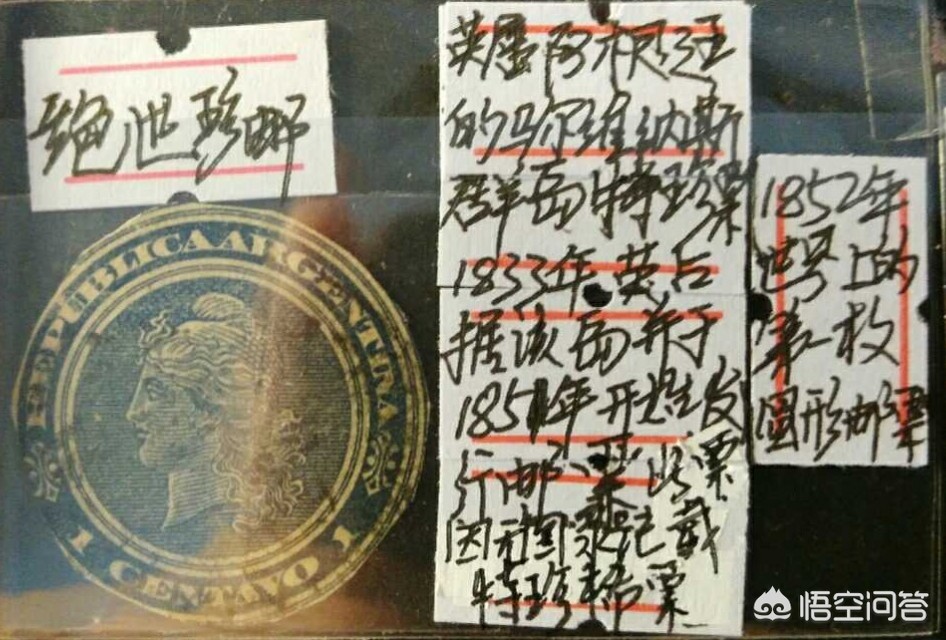 绝泄珍邮
REPÚBLICA ARGENTINA
1 CENTAVO 1
英属阿根廷
的马尔维纳斯
群岛特珍票
1833年英占
据该岛并于
1851年开始发
行邮票此票
因和国家记载
特珍稀票
1852年
世界上的
第一枚
圆形邮票
悟空问答